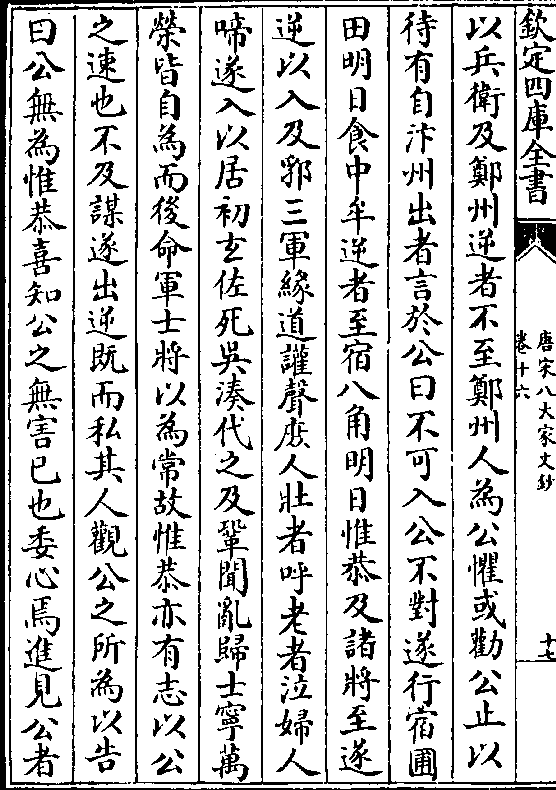 欽定四庫全書
唐宋八大家文鈔
卷十六
十七
以兵衛及鄭州逆者不至鄭州人為公懼或勸公止以
待有自汴州出者言於公曰不可入公不對遂行宿圃
田明日食中牟逆者至宿八角明日惟恭及諸將至遂
逆以入及郛三軍緣道讙聲庶人壯者呼老者泣婦人
啼遂入以居初玄佐死吳湊代之及鞏聞亂歸士寧萬
榮皆自為而後命軍士將以為常故惟恭亦有志以公
之速也不及謀遂出逆既而私其人觀公之所為以告
曰公無為惟恭喜知公之無害已也委心焉進見公者